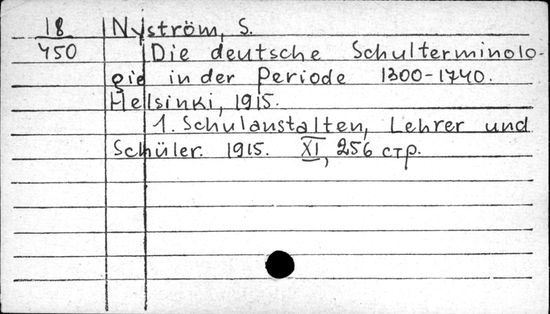 18 Nyström, S.
450 Die deutsche Schulterminolo-
gie in der Periode 1300-1740.
Helsinki, 1915.
1. Schulanstalten, Lehrer und
Schüler. 1915. XI, 256 стр.